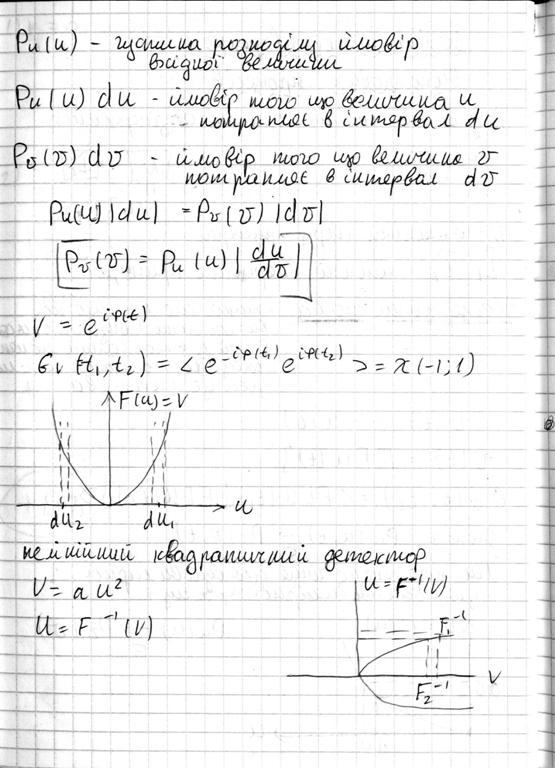 Pu(u) – густина розподілу ймовір
вхідної величини
Pu(u) du – ймовір того що величина u
потрапляє в інтервал du
Pv(v) dv – ймовір того що величина v
потрапляє в інтервал dv
Pu(u)|du| = Pv(v)|dv|
Pv(v) = Pu(u)|du/dv|
V = e^{iφ(t)}
σv(t1,t2) = < e^{-iφ(t1)} e^{iφ(t2)} > = χ(-1;1)
F(u)=V
u
du2 du1
нелінійний квадратичний детектор
V = a u²
U = F⁻¹(V)
U = F⁻¹(V)
F1⁻¹
V
F2⁻¹